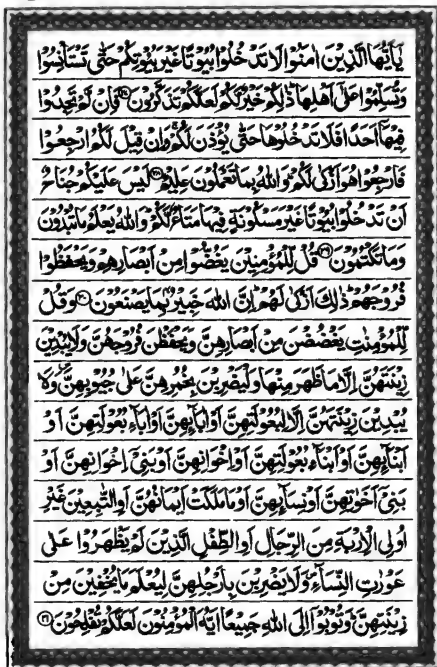 يٰٓاَيُّهَا الَّذِيْنَ اٰمَنُوْا لَا تَدْخُلُوْا بُيُوْتًا غَيْرَ بُيُوْتِكُمْ حَتّٰى تَسْتَاْنِسُوْا
وَتُسَلِّمُوْا عَلٰٓى اَهْلِهَا ذٰلِكُمْ خَيْرٌ لَّكُمْ لَعَلَّكُمْ تَذَكَّرُوْنَ ۝ فَاِنْ لَّمْ تَجِدُوْا
فِيْهَآ اَحَدًا فَلَا تَدْخُلُوْهَا حَتّٰى يُؤْذَنَ لَكُمْ وَاِنْ قِيْلَ لَكُمُ ارْجِعُوْا
فَارْجِعُوْا هُوَ اَزْكٰى لَكُمْ وَاللّٰهُ بِمَا تَعْمَلُوْنَ عَلِيْمٌ ۝ لَيْسَ عَلَيْكُمْ جُنَاحٌ
اَنْ تَدْخُلُوْا بُيُوْتًا غَيْرَ مَسْكُوْنَةٍ فِيْهَا مَتَاعٌ لَّكُمْ وَاللّٰهُ يَعْلَمُ مَا تُبْدُوْنَ
وَمَا تَكْتُمُوْنَ ۝ قُلْ لِّلْمُؤْمِنِيْنَ يَغُضُّوْا مِنْ اَبْصَارِهِمْ وَيَحْفَظُوْا
فُرُوْجَهُمْ ذٰلِكَ اَزْكٰى لَهُمْ اِنَّ اللّٰهَ خَبِيْرٌۢ بِمَا يَصْنَعُوْنَ ۝ وَقُلْ
لِّلْمُؤْمِنٰتِ يَغْضُضْنَ مِنْ اَبْصَارِهِنَّ وَيَحْفَظْنَ فُرُوْجَهُنَّ وَلَا يُبْدِيْنَ
زِيْنَتَهُنَّ اِلَّا مَا ظَهَرَ مِنْهَا وَلْيَضْرِبْنَ بِخُمُرِهِنَّ عَلٰى جُيُوْبِهِنَّ وَلَا
يُبْدِيْنَ زِيْنَتَهُنَّ اِلَّا لِبُعُوْلَتِهِنَّ اَوْ اٰبَآئِهِنَّ اَوْ اٰبَآءِ بُعُوْلَتِهِنَّ اَوْ
اَبْنَآئِهِنَّ اَوْ اَبْنَآءِ بُعُوْلَتِهِنَّ اَوْ اِخْوَانِهِنَّ اَوْ بَنِيْٓ اِخْوَانِهِنَّ اَوْ
بَنِيْٓ اَخَوٰتِهِنَّ اَوْ نِسَآئِهِنَّ اَوْ مَا مَلَكَتْ اَيْمَانُهُنَّ اَوِ التّٰبِعِيْنَ غَيْرِ
اُولِى الْاِرْبَةِ مِنَ الرِّجَالِ اَوِ الطِّفْلِ الَّذِيْنَ لَمْ يَظْهَرُوْا عَلٰى
عَوْرٰتِ النِّسَآءِ وَلَا يَضْرِبْنَ بِاَرْجُلِهِنَّ لِيُعْلَمَ مَا يُخْفِيْنَ مِنْ
زِيْنَتِهِنَّ وَتُوْبُوْٓا اِلَى اللّٰهِ جَمِيْعًا اَيُّهَ الْمُؤْمِنُوْنَ لَعَلَّكُمْ تُفْلِحُوْنَ ۝